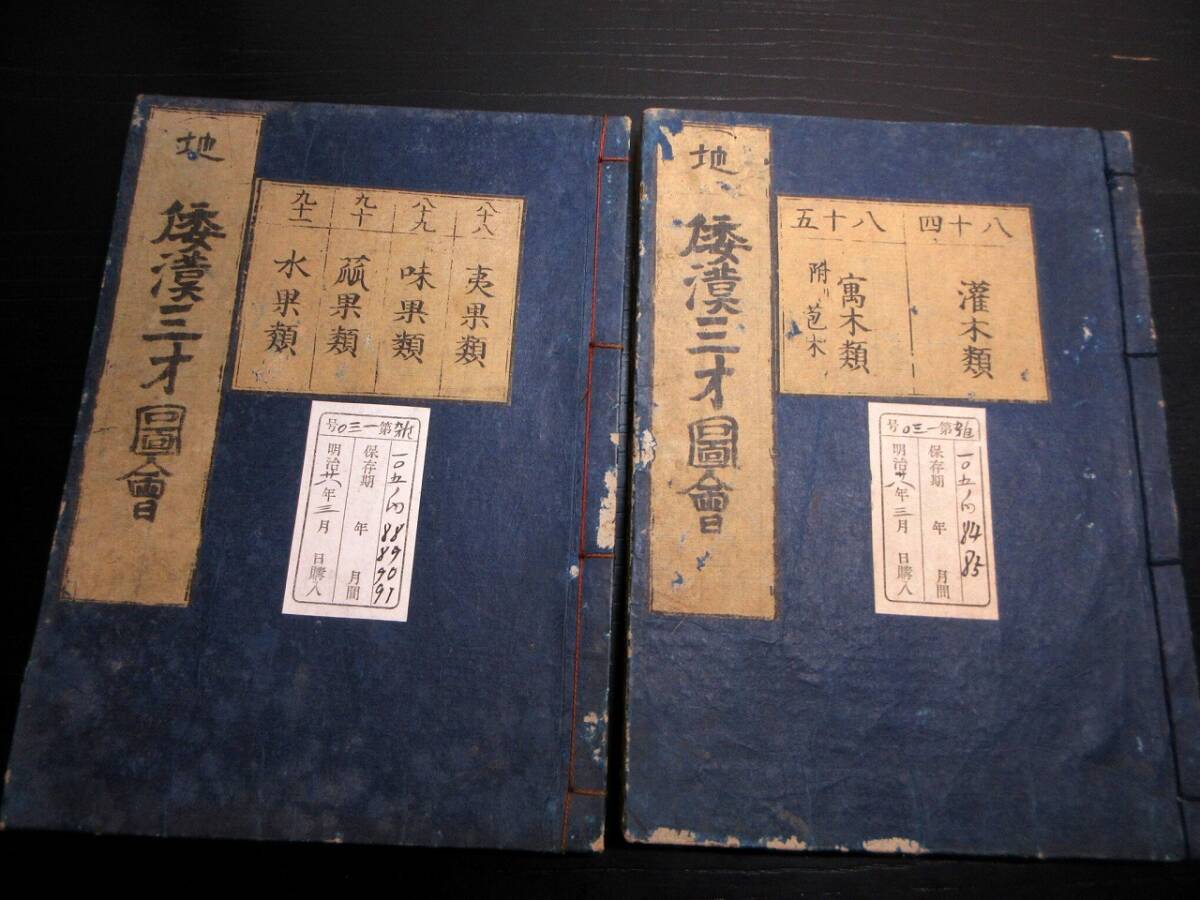 地
倭漢三才圖會
八十八
夷果類
八十九
味果類
九十
蓏果類
九十一
水果類
第三一〇号
一〇五ノ内 88 89 90 91
保存期 年 月間
明治廿八年三月 日購入
地
倭漢三才圖會
八十四
灌木類
八十五
寓木類
附リ苞木
雑第三一〇号
一〇五ノ内 84 85
保存期 年 月間
明治廿八年三月 日購入